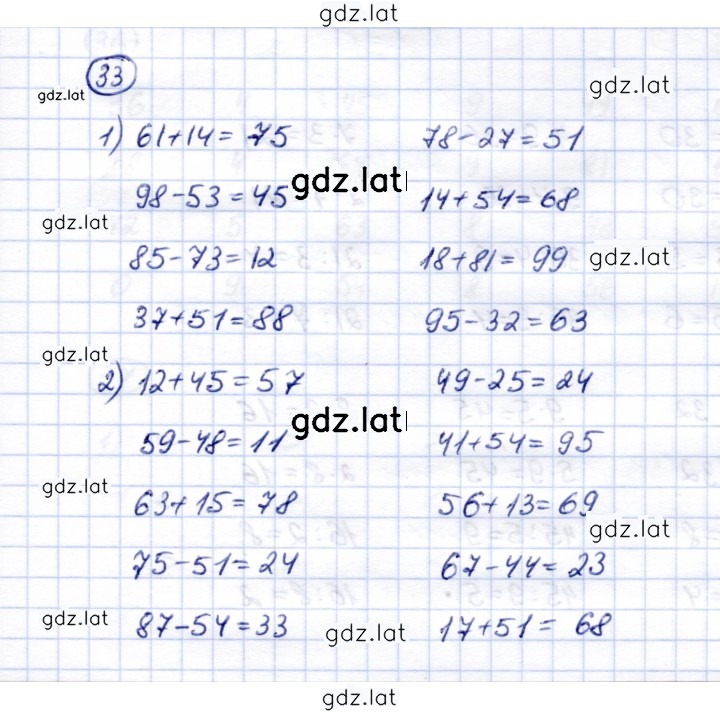 gdz.lat
33
gdz.lat
gdz.lat
1) 61+14 = 75 78-27 = 51
gdz.lat
98-53 = 45 14+54 = 68
gdz.lat
85-73 = 12 18+81 = 99 gdz.lat
37+51 = 88 95-32 = 63
gdz.lat
2) 12+45 = 57 49-25 = 24
gdz.lat
59-48 = 11 41+54 = 95
gdz.lat
63+15 = 78 56+13 = 69
gdz.lat
75-51 = 24 67-44 = 23
gdz.lat
87-54 = 33 gdz.lat 17+51 = 68
gdz.lat